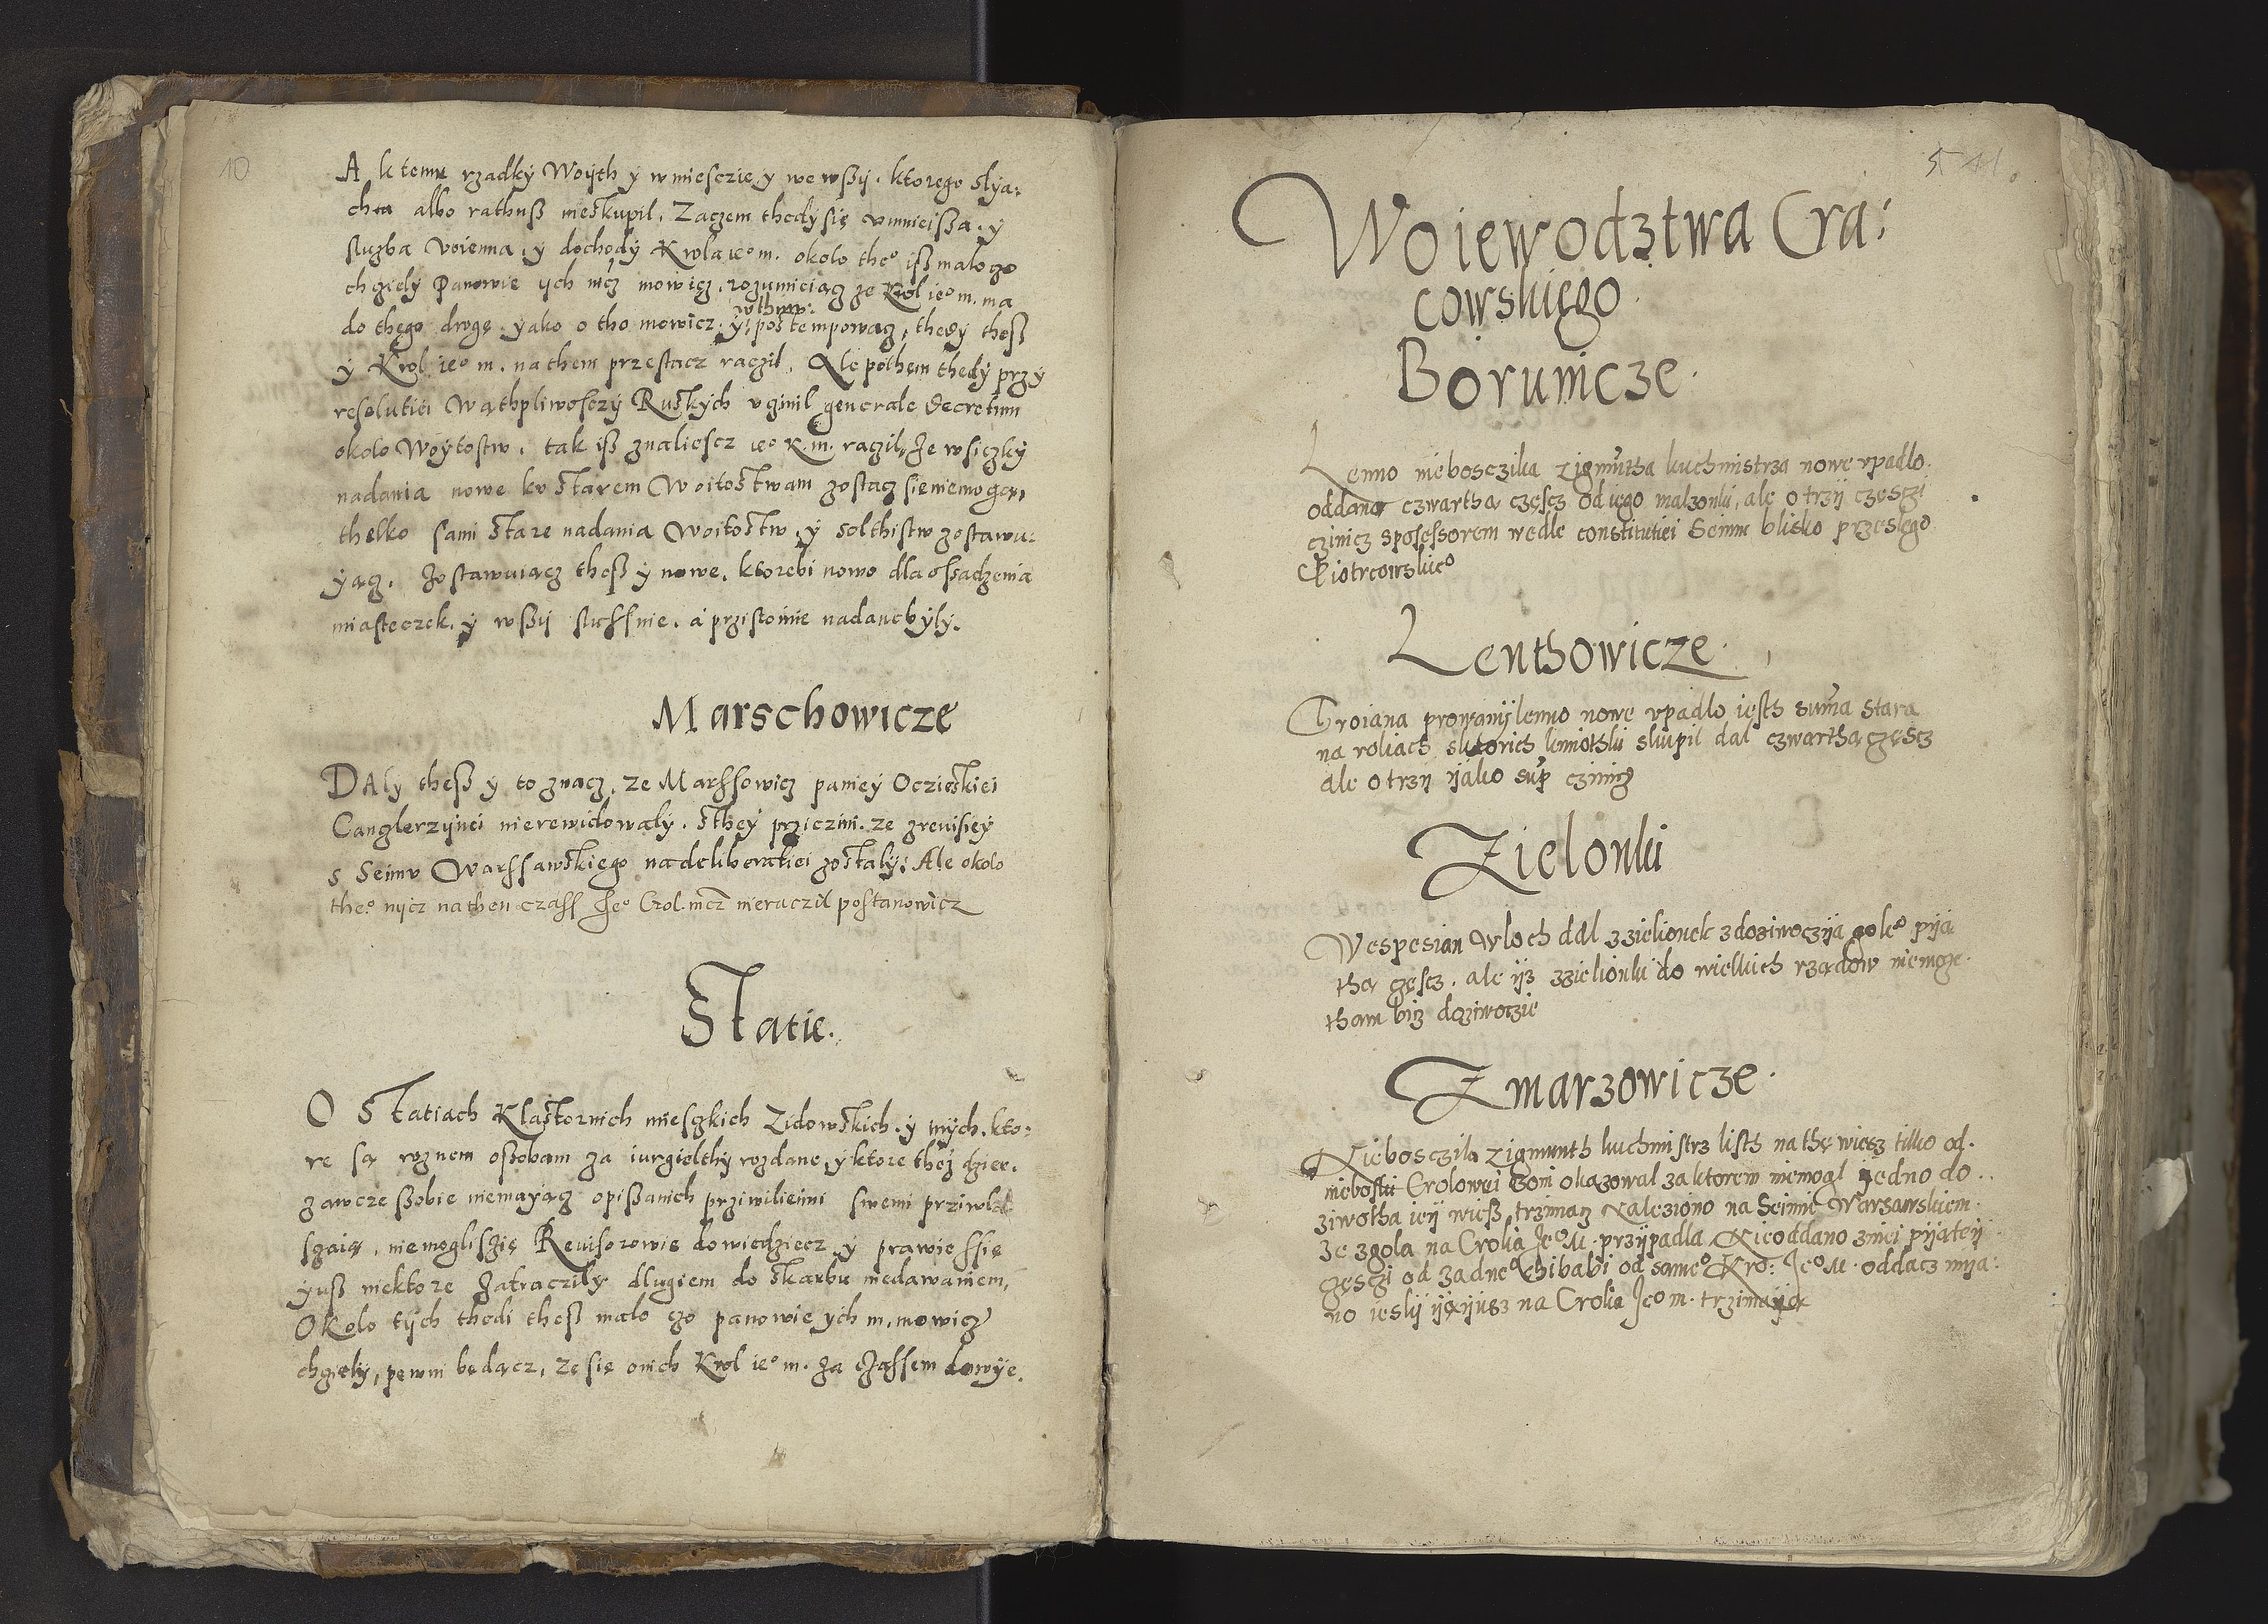 10
A k temu rzadky Woyth y w miesczie, y we wßij. ktorego slya:
chta albo rathuß nieskupil. Zaczem thedy się vmnieißa. y
służba voienna, y dochody Krola ie° m. około the° iß malo go
chcziely Panowie ych mcz mowicz, rozumieiącz ze Krol ie° m. ma
w thim:
do thego drogę. yako o tho mowicz. y postempowacz, thedy theß
y Krol ie° m. na them przestacz raczil. Ale pothem thedy przy
resolutiei Wąthpliwosczy Ruskych vczinil generale decretum
około Woytostw. tak iß znaliescz ie° K. m. raczil, że wsiczky
nadania nowe ku starem Woitostwam zostacz sie niemogą,
thelko sami stare nadania Woitostw, y solthistw zostawu:
yącz. Zostawuiącz theß y nowe, ktorebi nowo dla ossadzenia
miasteczek. y wßij slussnie. a przistoinie nadane były.
Marschowicze
DAly theß y to znacz, ze Marssowicz paniey Oczieskiei
Canglerzynei nierewidowaly. s they prziczini. ze z reuisiey
s Seimu Warssawskiego na deliberatiei zostaly: Ale około
the° nycz na then czass Je° Crol. mcz nieraczil postanowicz
Statie.
O Statiach Klastornich miesckich Zidowskich. y inych. kto:
re są roznem oßobam za iurgielthy rozdane, y ktore theż dzier.
zawcze ßobie niemayącz opißanich prziwilieimi swemi prziwla
szaią, niemogli szię Reuisorowie dowiedziecz y prawie ssię
yuß niektore zatraczily dlugiem do skarbu niedawaniem,
Około tych thedi theß malo czo panowie ych m. mowicz
chcziely, pewni będącz, ze się o nich Krol ie° m. za czassem dowye.
5 11.
Woiewodztwa Cra:
cowskiego
Borunicze.
Lenno niebosczika Zigmuntha kuchmistrza nowe vpadlo.
oddana czwartha częscz od iego malzonki, ale o trzij częsczi
czinicz s posessorem wedle constitutiei Seimu blisko przeslego
Piotrcowskie°
Lenthowicze.
Troiana prowany lenno nowe vpadlo iesth suma stara
na roliach s ktorich kmiothki skupil dal czwarthą częscz
ale o trzy yako sup czinicz
Zielonki
Wespesian Wloch dal z zielionek z doziwoczija gole° pija
tha częscz. ale yz z zielionki do wielkich rządow niemoze.
tham bicz doziwoczie
Zmarzowicze.
Niebosczik Zigmunth kuchmistrz listh na the wiesz tilko od.
nieboski Crolowei Boni okazowal za ktorem niemogl jedno do..
ziwotha ieij wieß trzimacz Nalieziono na Seimie Warzawskiem.
Ze zgola na Crolia Je° M. przijpadla Nieoddano z niei pijatei
częsczi od żadne° chibabi od same° Kro: Je° M. oddacz mija:
no ieslij iją ijusz na Crolia Je° m. trzimaiją